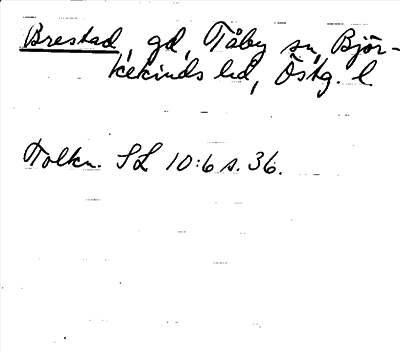 Brestad, gd, Tåby sn, Björ-
kekinds hd, Östg. l
Tolkn. SL 10:6 s. 36.